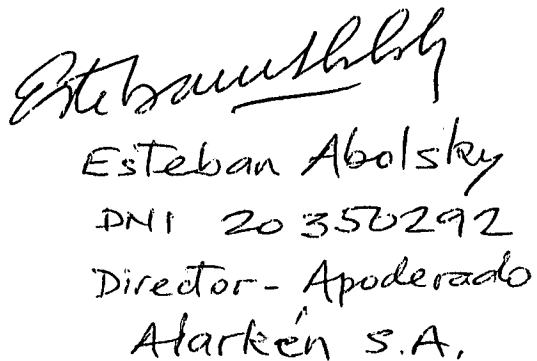 Esteban Abolsky
DNI 20 350292
Director - Apoderado
Alarkén S.A.